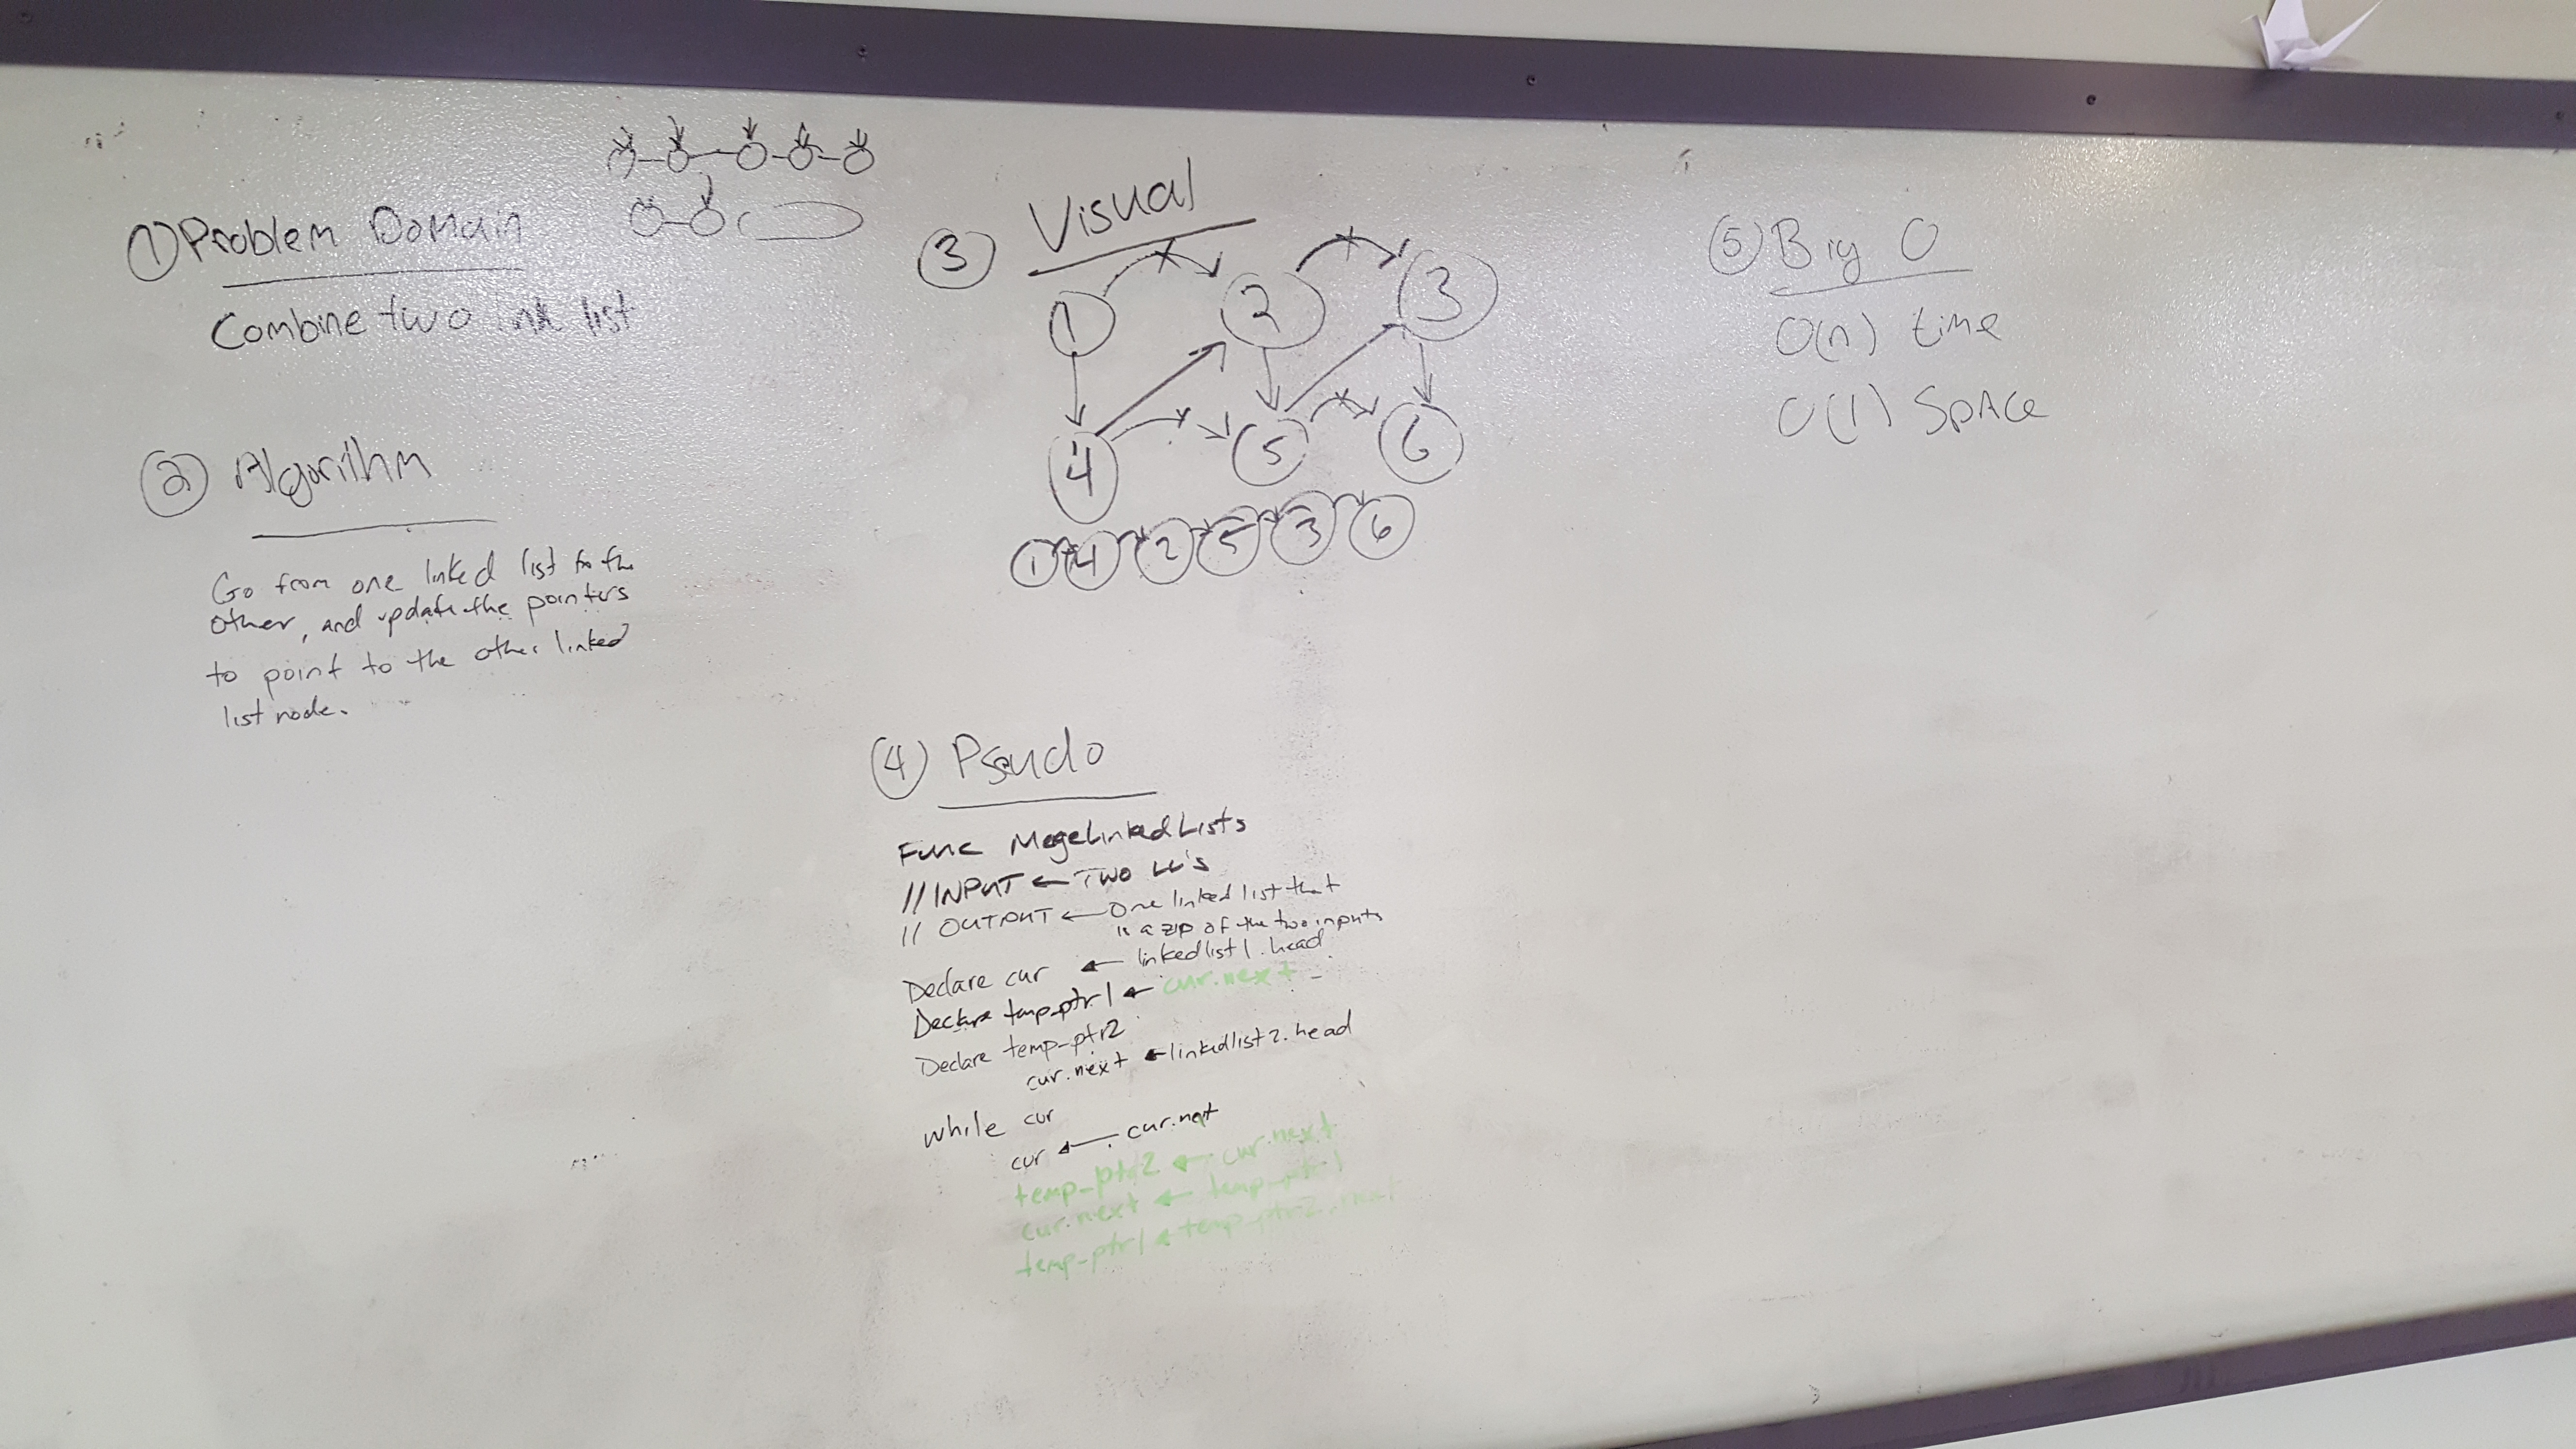 ① Problem Domain
Combine two link list
② Algorithm
Go from one linked list to the
other, and update the pointers
to point to the other linked
list node.
③ Visual
1 2 3
4 5 6
1 4 2 5 3 6
④ Pseudo
Func MegeLinkedLists
// INPUT ← TWO LL'S
// OUTPUT ← One linked list that
is a zip of the two inputs
Declare cur ← linkedlist1.head
Declare tmp_ptr1 ← cur.next
Declare temp_ptr2
cur.next ← linkedlist2.head
while cur
cur ← cur.next
temp_ptr2 ← cur.next
cur.next ← temp_ptr1
temp_ptr1 ← temp_ptr2.next
⑤ Big O
O(n) time
O(1) Space